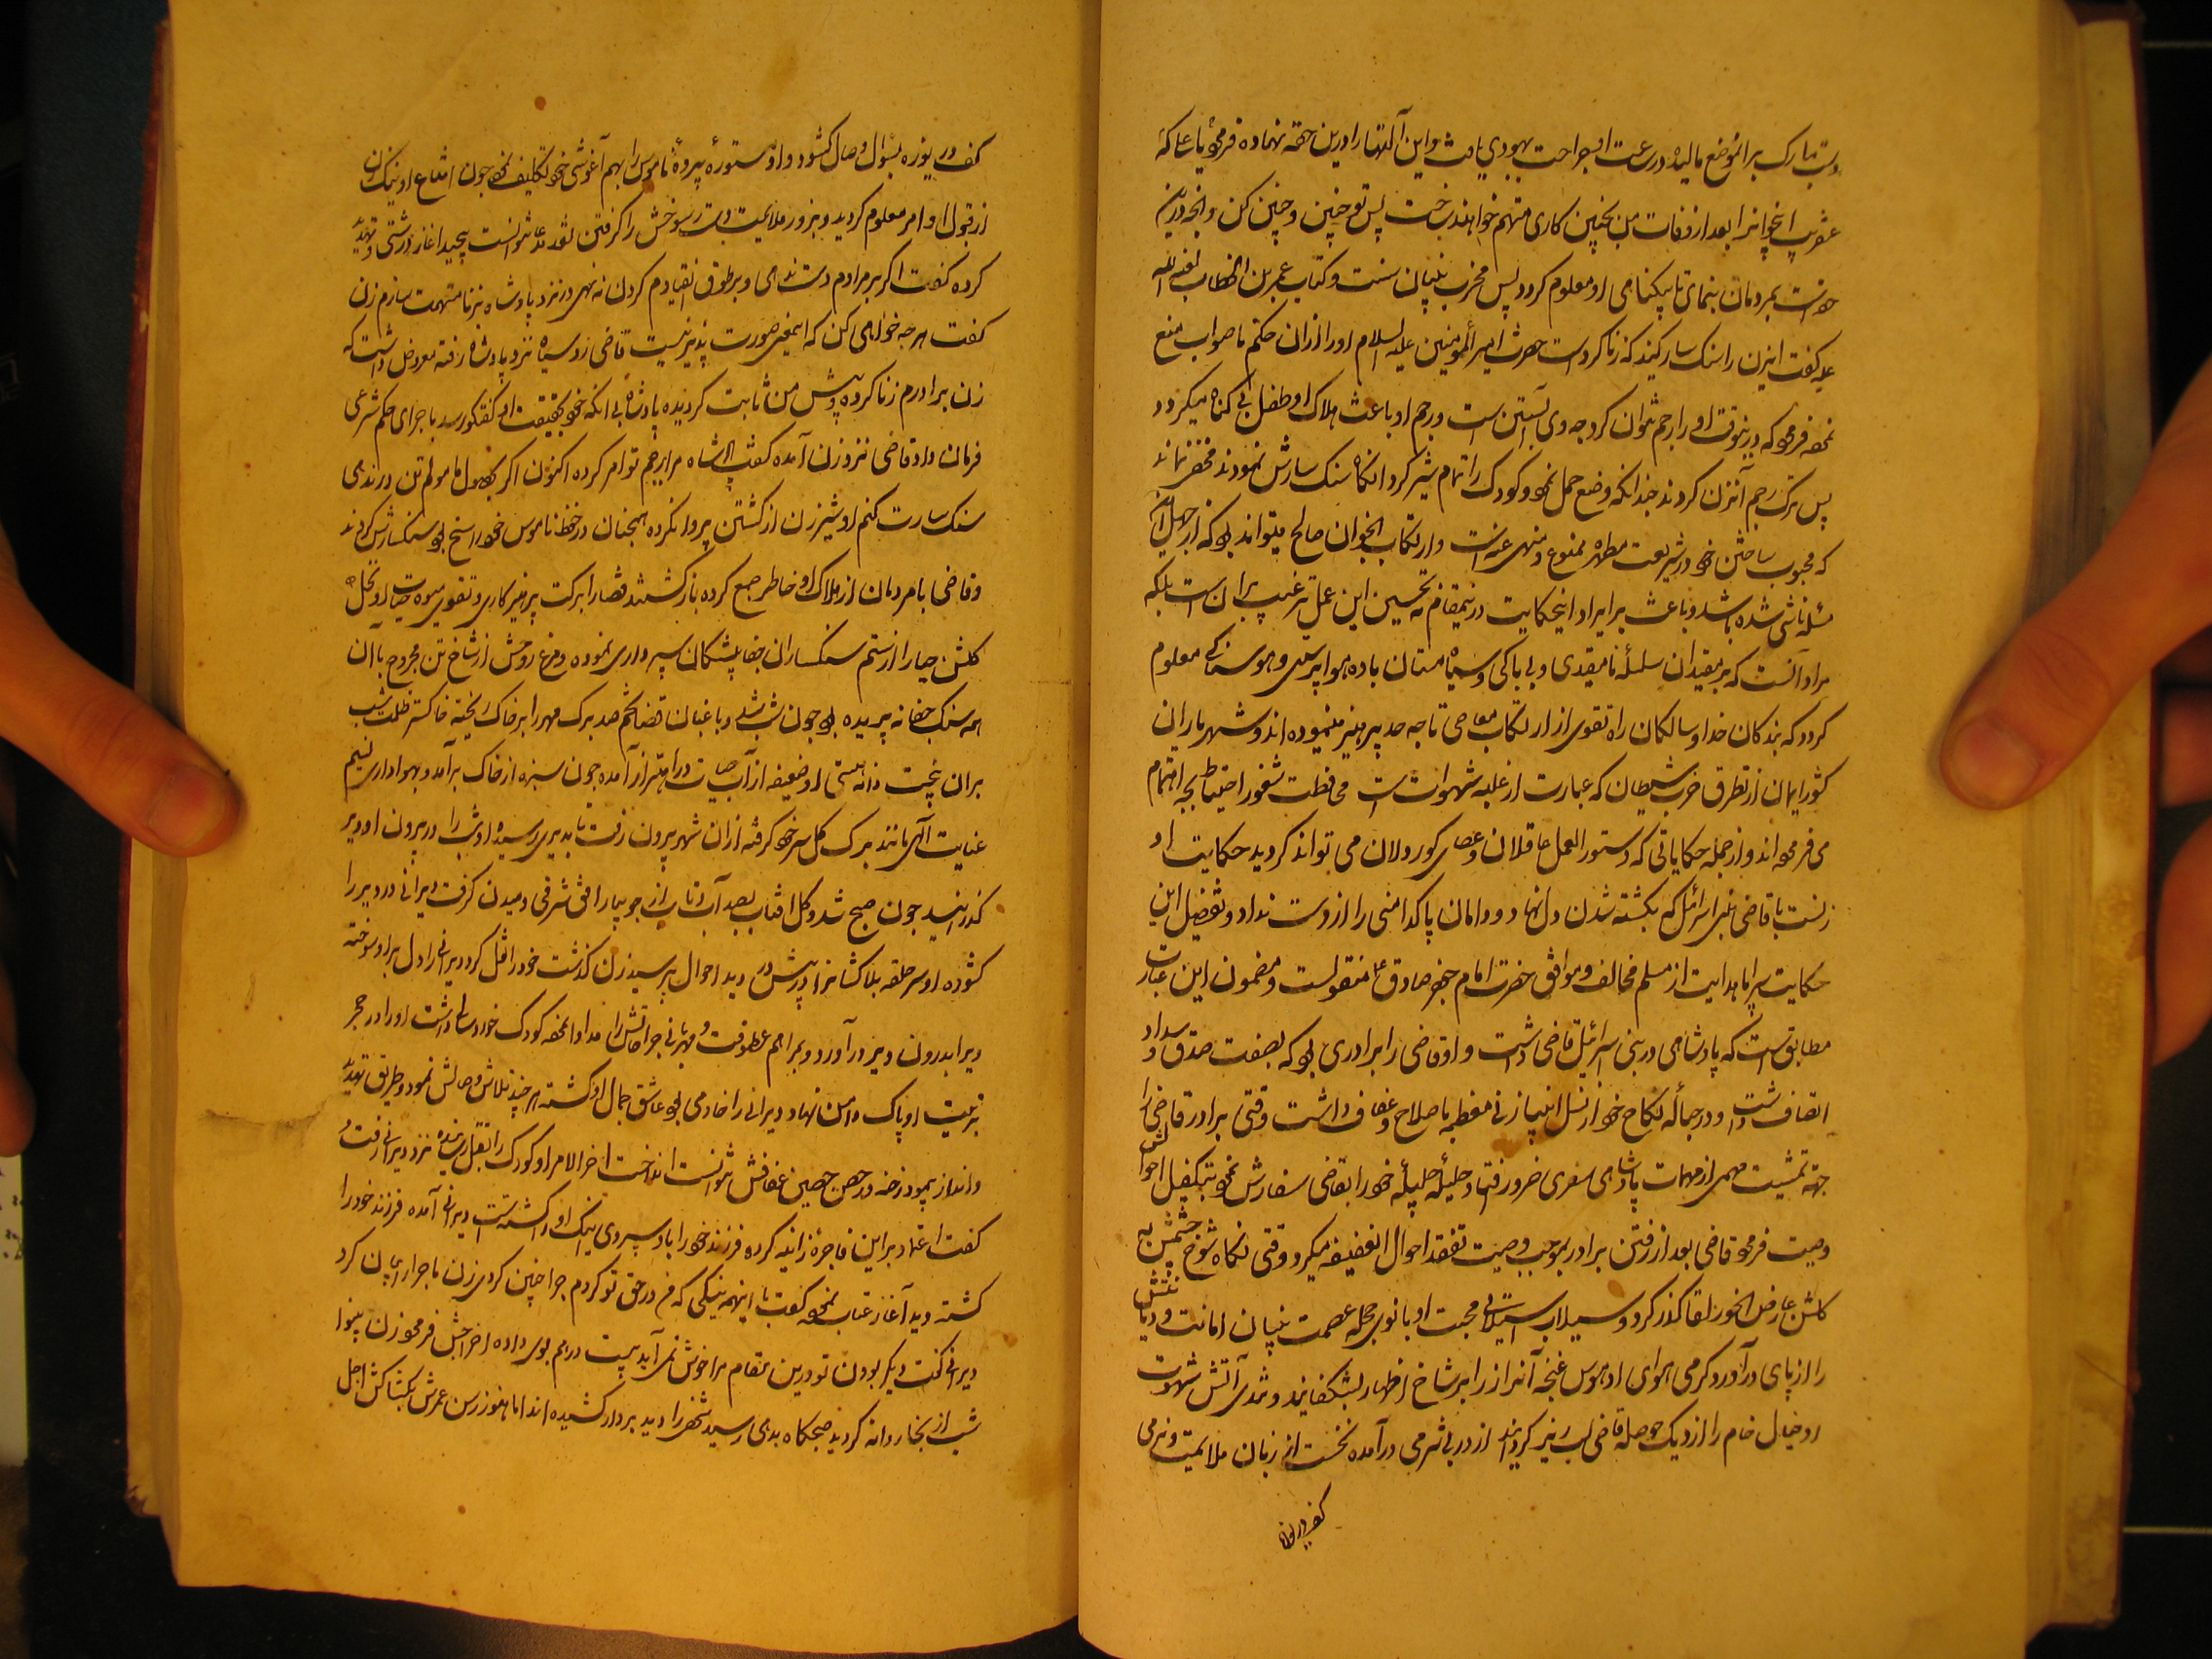 دست مبارک برانموضع مالیده در ساعت او جراحت بهبودی یافت و این آلتها را درین حقه نهاده فرمود یا علی که
عنقریب انجوانرا بعد از وفات من بچنین کاری متهم خواهند ساخت پس تو چنین و چنین کن و آنچه درین
حقه است بمردمان بنمای تا بیکناهی او معلوم کردد پس مخرب بنیان سنت و کتاب عمر بن الخطاب
علیه کفت اینزن را سنکسار کنید که زنا کردست حضرت امیر المومنین علیه السلام او را ازان حکم ناصواب منع
نموده فرمود که درینوقت او را رجم نتوان کرد چه وی آبستن است و رجم او باعث هلاک او طفل بی کناه میکردد
پس ترک رجم آنزن کردند چندانکه وضع حمل نمود و کودک را تمام شیر کرد انکاه سنک سارش نمودند مخفی نماند
که مجبوب ساختن خود در شریعت مطهره ممنوع و منهی عنه است و ارتکاب انجوان صالح میتواند بود که از جهل این
مسئله ناشی شده باشد و باعث بر ایراد اینحکایت درینمقام نه تحسین این عمل و ترغیب بران است بلکه
مراد آنست که بر مقیدان سلسله نامقیدی و بی باکی و سیاه مستان باده هوا پرستی و هوسناکی معلوم
کردد که بندکان خدا و سالکان راه تقوی از ارتکاب معاصی تا چه حد پرهیز مینموده اند و شهریاران
کشور ایمان از تطرق حزب شیطان که عبارت از غلبه شهوات است محافظت ثغور احتیاط بچه اهتمام
می فرموده اند و از جمله حکایاتی که دستور العمل عاقلان و عصای کوردلان می تواند کردید حکایت آن
زنست با قاضی بنی اسرائیل که بکشته شدن دل نهاد و دامان پاکدامنی را از دست نداد و تفصیل این
حکایت سراپا هدایت از مسلم مخالف و موافق حضرت امام جعفر صادق ع منقولست و مضمون این عبارت
مطابق است که پادشاهی در بنی اسرائیل قاضی داشت و او قاضی را برادری بود که بصفت صدق و سداد
اتصاف داشت و در حباله نکاح خود از نسل انبیا زنی معظمه با صلاح و عفاف داشت وقتی برادر قاضی را
جهة تمشیت مهمی از مهمات پادشاهی سفری ضرور افتاد حلیله جلیله خود را بقاضی سفارش نموده بتکفل احوالش
وصیت فرمود قاضی بعد از رفتن برادر بموجب وصیت تفقد احوال انعفیفه میکرد وقتی نکاه شوخ چشمش به
کلشن عارض انخورلقا کذر کرد و سیلاب استیلای محبت او بانوی حجله عصمت بنیان امانت و دیانتش
را از پای در آورد کرمی هوای او هوس غنچه آنراز را بر شاخ اظهار بشکفانید و تندی آتش شهوت
او خیال خام را از دیک حوصله قاضی لبریز کردانید از در بی شرمی در آمده نخست از زبان ملایمت و نرمی
کف دریوزه
کف دریوزه بسؤال وصال کشود و او مستوره پرده ناموس را بهم آغوشی خود تکلیف نمود چون امتناع او نیک زن
از قبول او امر معلوم کردید و بزور ملایمت دست رسوخش را کرفتن نقد مدعا نتوانست پیچید اغاز درشتی و تهدید
کرده کفت اکر بر مرادم دست ندهی و بر طوق انقیادم کردن ننهی در نزد پادشاه بزنا متهمت سازم زن
کفت هر چه خواهی بکن که اینمعنی صورت پذیر نیست قاضی زود سیاه نزد پادشاه رفته معروض داشت که
زن برادرم زنا کرده و پیش من ثابت کردیده پادشاه بی انکه خود بحقیقت او کفتکو رسد باجرای حکم شرعی
فرمان داد قاضی نزد زن آمده کفت پادشاه مرا برجم تو امر کرده اکنون اکر بحصول مامولم تن در ندهی
سنک سارت کنم او شیرزن از کشتن پروا نکرده همچنان در حفظ ناموس خود راسخ بود سنکسارش کردند
و قاضی با مردمان از هلاک او خاطر جمع کرده بازکشتند قضا را برکت پرهیزکاری و تقوی میوه حیات او نخل
کلشن حیا را از ستم سنکساران جفا پیشکان سپرداری نموده و مرغ روحش از شاخ تن مجروح باآن
همه سنک جفا نه پریده بود چون شب شد و باغبان قضا تخم صد برک مهر را بر خاک ریخته خاکستر ظلمت شب
بران بیخت دانه هستی او ضعیفه از آب حیات در اهتزاز آمده چون سبزه از خاک بر آمد و بهواداری نسیم
عنایت آلهی مانند برک کل سر خود کرفته ازان شهر بیرون رفت تا بدیری رسید و اوشب را در بیرون او دیر
کذرانید چون صبح شد و کل افتاب بصد آب و تاب از جویبار افق شرقی دمیدن کرفت دیرانی در دیر را
کشوده او سر حلقه بلاکشانرا در پیش در دید احوال پرسید زن کذشت خود را نقل کرد دیرانی را دل بر او سوخته
ویرا بدرون دیر در آورد و بمراهم عطوفت و مهربانی جراحاتش را مداوا نمود کودک خوردسالی داشت او را در حجر
تربیت او پاک دامن نهاد و دیرانی را خادمی بود عاشق جمال او کشته هر چند تلاش وصالش نمود و طریق تهدید
و انداز پیمود رخنه در حصن حصین عفافش نتوانست انداخت اخر الامر او کودک را بقتل رسانیده نزد دیرانی رفت و
کفت اعتماد بر این فاجره زانیه کرده فرزند خود را باو سپردی اینک او را کشته است دیرانی آمده فرزند خود را
کشته دید آغاز عتاب نموده کفت با اینهمه نیکی که من در حق تو کردم چرا چنین کردی زن ماجرا را بیان کرد
دیرانی کفت دیکر بودن تو درین مقام مرا خوش نمی آید بیست درهم بوی داده اخراجش فرمود زن بینوا
شب از نجا روانه کردید صبحکاه بدهی رسید شخصی را دید بر دار کشیده اند اما هنوز رسن عمرش بکشاکش اجل